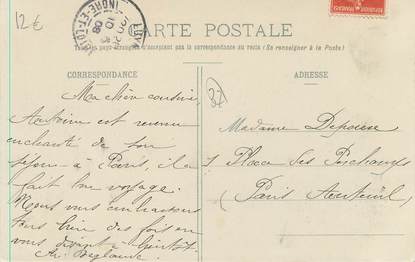 12€
CARTE POSTALE
Tous les pays étrangers n'acceptent pas la correspondance au recto (Se renseigner à la Poste)
CORRESPONDANCE
ADRESSE
INDRE-ET-LOIRE
37
Ma chère cousine,
est revenu
enchanté de son
séjour à Paris, il a
fait bon voyage.
Nous vous embrassons
tous bien des fois en
vous disant à bientôt.
Madame
Place des
Paris Auteuil